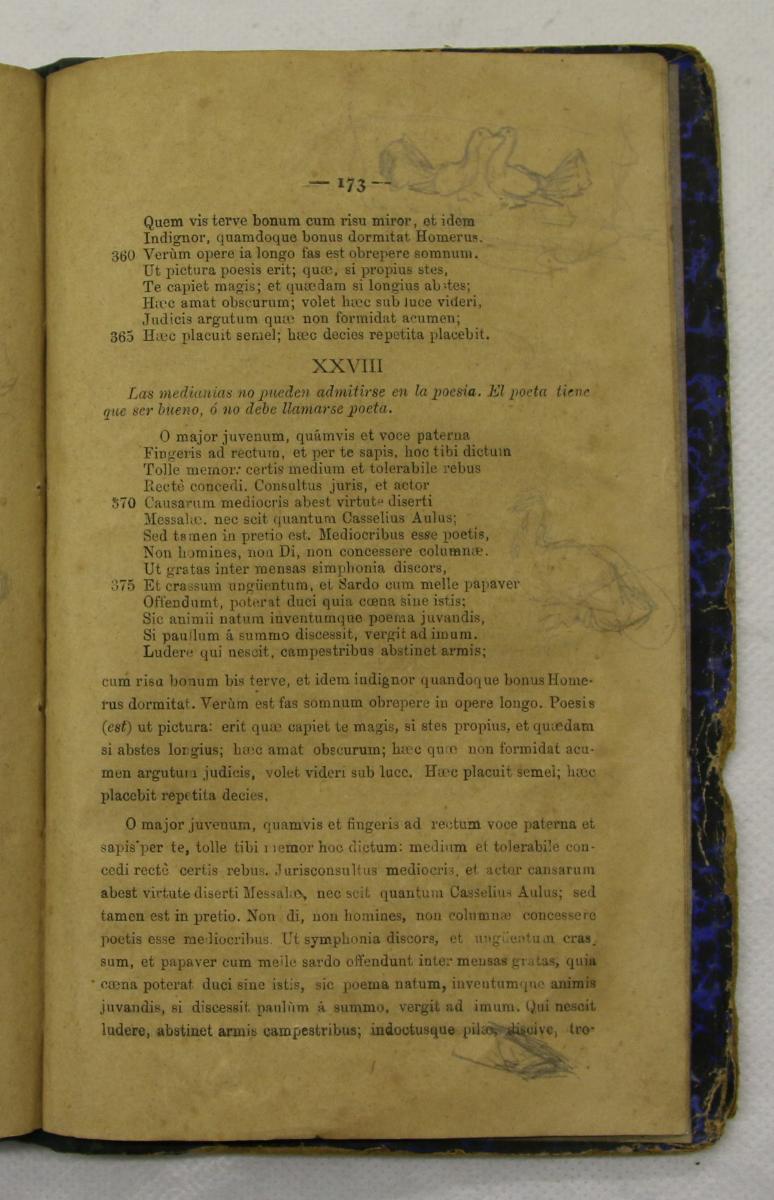 — 173 —
Quem vis terve bonum cum risu miror, et idem
Indignor, quamdoque bonus dormitat Homerus.
360 Verùm opere ia longo fas est obrepere somnum.
Ut pictura poesis erit; quæ, si propius stes,
Te capiet magis; et quædam si longius abstes;
Hæc amat obscurum; volet hæc sub luce videri,
Judicis argutum quæ non formidat acumen;
365 Hæc placuit semel; hæc decies repetita placebit.
XXVIII
Las medianias no pueden admitirse en la poesía. El poeta tiene
que ser bueno, ó no debe llamarse poeta.
O major juvenum, quámvis et voce paterna
Fingeris ad rectum, et per te sapis, hoc tibi dictum
Tolle memor: certis medium et tolerabile rebus
Rectè concedi. Consultus juris, et actor
370 Causarum mediocris abest virtute diserti
Messalæ. nec scit quantum Casselius Aulus;
Sed tamen in pretio est. Mediocribus esse poetis,
Non homines, non Di, non concessere columnæ.
Ut gratas inter mensas simphonia discors,
375 Et crassum ungüentum, et Sardo cum melle papaver
Offendumt, poterat duci quia cœna sine istis;
Sic animii natum inventumque poema juvandis,
Si paullum á summo discessit, vergit ad imum.
Ludere qui nescit, campestribus abstinet armis;
cum risa bonum bis terve, et idem indignor quandoque bonus Home-
rus dormitat. Verùm est fas somnum obrepere in opere longo. Poesis
(est) ut pictura: erit quæ capiet te magis, si stes propius, et quædam
si abstes longius; hæc amat obscurum; hæc quæ non formidat acu-
men argutum judicis, volet videri sub luce. Hæc placuit semel; hæc
placebit repetita decies.
O major juvenum, quamvis et fingeris ad rectum voce paterna et
sapis per te, tolle tibi memor hoc dictum: medium et tolerabile con-
cedi rectè certis rebus. Jurisconsultus mediocris, et actor cansarum
abest virtute diserti Messalæ, nec scit quantum Casselius Aulus; sed
tamen est in pretio. Non di, non homines, non columnæ concessere
poetis esse mediocribus. Ut symphonia discors, et ungüentum cras-
sum, et papaver cum melle sardo offendunt inter mensas gratas, quia
cœna poterat duci sine istis, sic poema natum, inventumque animis
juvandis, si discessit paulùm á summo, vergit ad imum. Qui nescit
ludere, abstinet armis campestribus; indoctusque pilæ, discive, tro-